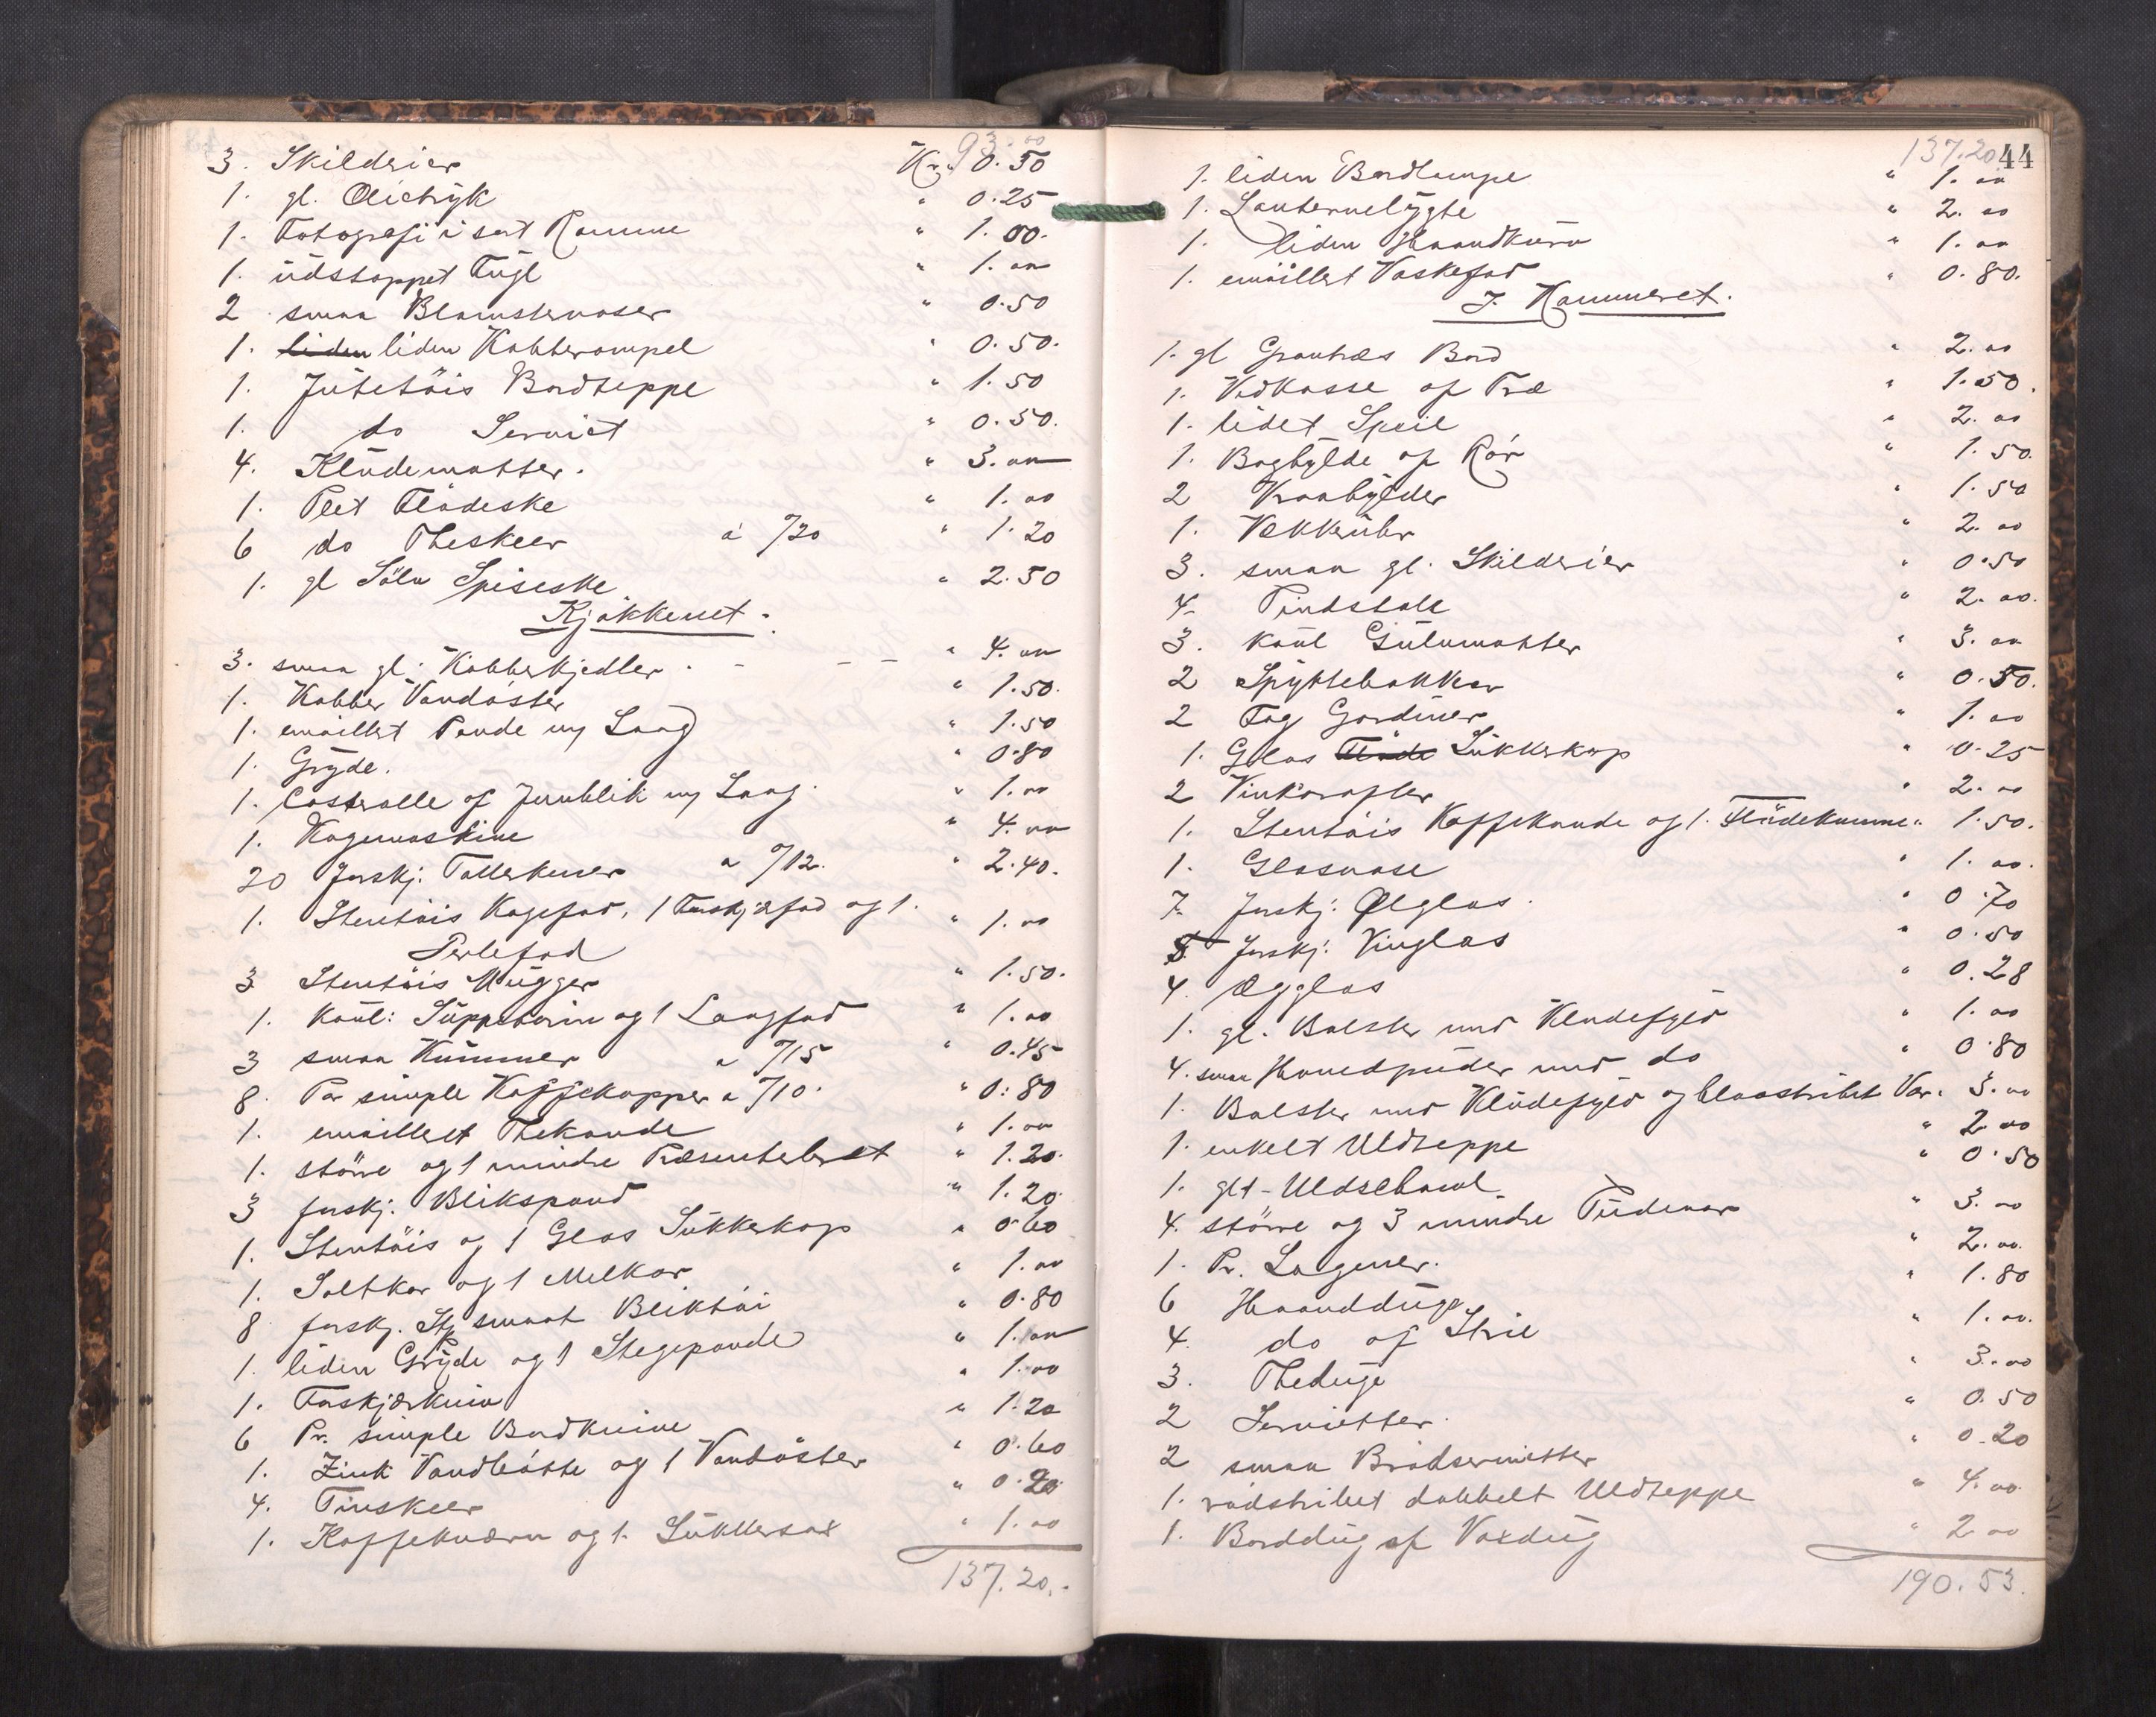 93.00
3. Skilderier Kr. 0.50
1. gl. Olietryk " 0.25
1. Fotografi i sort Ramme " 1.00.
1. udstoppet Fugl " 1.00
2 smaa Blomstervaser " 0.50
1. liden liden Kobberampel " 0.50.
1. Jutetöis Bordteppe " 1.50
1. do Serviet " 0.50.
4. Kludematter. " 3.00
1. Plet Flödeske " 1.00
6 do Theskeer à %20 " 1.20
1. gl Sölv Spiseske " 2.50
Kjökkenet.
3. smaa gl. Kobberkjedler. - - - " 4.00
1. Kobber Vandöster " 1.50.
1. emaillet Pande m/ Laag " 1.50
1. Gryde. " 0.80
1. Castrolle af Jernblik m/ Laag. " 1.00
1. Kogemaskine " 4.00
20 forskj. Tallerkener a %12. " 2.40.
1. Stentöis Kagefad, 1 Forskjærfad og 1. " 1.00
Perlefad
3 Stentöis Mugger " 1.50.
1. Koul: Suppeterin og 1 Langfad " 1.00
3 smaa Kummer a %15 " 0.45
8. Par simple Kaffekopper a %10. " 0.80
1. emailleret Thekande " 1.00
1. större og 1 mindre Præsenterbret " 1.20.
3 forskj. Blikspand " 1.20.
1. Stentöis og 1 Glas Sukkerkop " 0.60
1. Saltkar og 1 Melkar " 1.00
8 forskj. Stk smaat Bliktöi " 0.80
1. liden Gryde og 1 Stegepande " 1.00
1. Forskjærkniv " 1.00
6 Pr. simple Bordknive " 1.20
1. Zink Vandbötte og 1 Vandöster " 0.60
4. Tinskeer " 0.20.
1. Kaffekværn og 1. Sukkersax " 1.00
137.20.-
137.20 44
1. liden Bordlampe " 1.00
1. Lanternelygte " 2.00
1. liden Haandkurv " 1.00
1. emaillet Vaskefad " 0.80.
I. Kammeret.
1. gl Grantræs Bord " 2.00
1. Vedkasse af Træ " 1.50.
1. lidet Speil " 2.00
1. Boghylde af Rör " 1.50.
2 Kraahylder " 1.50
1. Vækkeruhr " 2.00
3. smaa gl. Skilderier " 0.50
4. Pindstole " 2.00.
3. koul Gulvmatter " 3.00
2 Spyttebakker " 0.50.
2 Fag Gardiner " 1.00
1. Glas Flöde Sukkerkop " 0.25
2 Vinkarafler " 2.00
1. Stentöis Kaffekande og 1. Flödekumme " 1.50.
1. Glasvase " 1.00.
7. forskj. Ølglas. " 0.70
5 forskj. Vinglas " 0.50
4. Ægglas " 0.28
1. gl. Bolster med Kludefyld " 1.00
4. smaa Hovedpuder med do " 0.80
1. Bolster med Kludefyld og blaastribet Var. 3.00
1. enkelt Uldteppe " 2.00
1. glt - Uldschawl " 0.50
4. större og 3 mindre Pudevar " 3.00
1. Pr. Lagener. " 2.00.
6 Haandduge " 1.80
4. do af Strie " 1.00.
3. Theduge " 3.00
2 Servietter. " 0.50
2 smaa Brödservietter " 0.20
1. rödstribet dobbelt Uldteppe " 4.00
1. Borddug af Voxdug " 2.00
190.53.